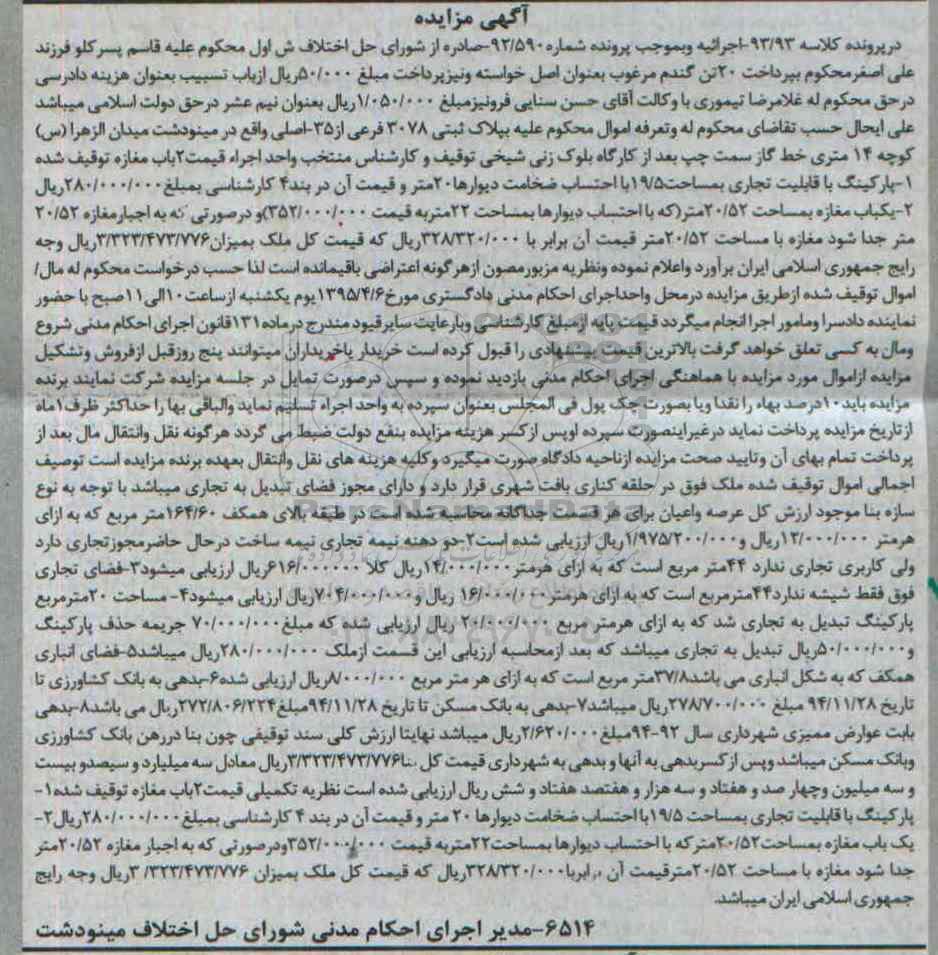 آگهی مزایده
درپرونده کلاسه ۹۳/۹۳-اجرائیه وبموجب پرونده شماره ۹۲/۵۹۰-صادره از شورای حل اختلاف ش اول محکوم علیه قاسم پسرکلو فرزند
علی اصغرمحکوم بپرداخت ۲۰تن گندم مرغوب بعنوان اصل خواسته ونیزپرداخت مبلغ ۵۰/۰۰۰ریال ازباب تسبیب بعنوان هزینه دادرسی
درحق محکوم له غلامرضا تیموری با وکالت آقای حسن سنایی فرونیزمبلغ ۱/۰۵۰/۰۰۰ریال بعنوان نیم عشر درحق دولت اسلامی میباشد
علی ایحال حسب تقاضای محکوم له وتعرفه اموال محکوم علیه بپلاک ثبتی ۳۰۷۸ فرعی از۳۵-اصلی واقع در مینودشت میدان الزهرا (س)
کوچه ۱۴ متری خط گاز سمت چپ بعد از کارگاه بلوک زنی شیخی توقیف و کارشناس منتخب واحد اجراء قیمت۲باب مغازه توقیف شده
۱-پارکینگ با قابلیت تجاری بمساحت۱۹/۵با احتساب ضخامت دیوارها۲۰متر و قیمت آن در بند۴ کارشناسی بمبلغ۲۸۰/۰۰۰/۰۰۰ریال
۲-یکباب مغازه بمساحت ۲۰/۵۲متر(که با احتساب دیوارها بمساحت ۲۲متربه قیمت ۳۵۲/۰۰۰/۰۰۰)و درصورتی که به اجبارمغازه ۲۰/۵۲
متر جدا شود مغازه با مساحت ۲۰/۵۲متر قیمت آن برابر با ۳۲۸/۳۲۰/۰۰۰ریال که قیمت کل ملک بمیزان۳/۳۲۳/۴۷۳/۷۷۶ریال وجه
رایج جمهوری اسلامی ایران برآورد واعلام نموده ونظریه مزبورمصون ازهرگونه اعتراضی باقیمانده است لذا حسب درخواست محکوم له مال/
اموال توقیف شده ازطریق مزایده درمحل واحداجرای احکام مدنی دادگستری مورخ۱۳۹۵/۴/۶یوم یکشنبه ازساعت۱۰الی۱۱صبح با حضور
نماینده دادسرا ومامور اجرا انجام میگردد قیمت پایه ازمبلغ کارشناسی وبارعایت سایرقیود مندرج درماده۱۳۱قانون اجرای احکام مدنی شروع
ومال به کسی تعلق خواهد گرفت بالاترین قیمت پیشنهادی را قبول کرده است خریدار یاخریداران میتوانند پنج روزقبل ازفروش وتشکیل
مزایده ازاموال مورد مزایده با هماهنگی اجرای احکام مدنی بازدید نموده و سپس درصورت تمایل در جلسه مزایده شرکت نمایند برنده
مزایده باید۱۰درصد بهاء را نقدا ویا بصورت چک پول فی المجلس بعنوان سپرده به واحد اجراء تسلیم نماید والباقی بها را حداکثر ظرف۱ماه
ازتاریخ مزایده پرداخت نماید درغیراینصورت سپرده اوپس ازکسر هزینه مزایده بنفع دولت ضبط می گردد هرگونه نقل وانتقال مال بعد از
پرداخت تمام بهای آن وتایید صحت مزایده ازناحیه دادگاه صورت میگیرد وکلیه هزینه های نقل وانتقال بعهده برنده مزایده است توصیف
اجمالی اموال توقیف شده ملک فوق در حلقه کناری بافت شهری قرار دارد و دارای مجوز فضای تبدیل به تجاری میباشد با توجه به نوع
سازه بنا موجود ارزش کل عرصه واعیان برای هر قسمت جداگانه محاسبه شده است در طبقه بالای همکف ۱۶۴/۶۰متر مربع که به ازای
هرمتر ۱۲/۰۰۰/۰۰۰ریال و۱/۹۷۵/۲۰۰/۰۰۰ریال ارزیابی شده است۲-دو دهنه نیمه تجاری نیمه ساخت درحال حاضرمجوزتجاری دارد
ولی کاربری تجاری ندارد ۴۴متر مربع است که به ازای هرمتر۱۴/۰۰۰/۰۰۰ریال کلا ۶۱۶/۰۰۰۰۰۰ریال ارزیابی میشود۳-فضای تجاری
فوق فقط شیشه ندارد۴۴مترمربع است که به ازای هرمتر۱۶/۰۰۰/۰۰۰ ریال و۷۰۴/۰۰۰/۰۰۰ریال ارزیابی میشود۴-مساحت ۲۰مترمربع
پارکینگ تبدیل به تجاری شد که به ازای هرمتر مربع ۲۰/۰۰۰/۰۰۰ ریال ارزیابی شده که مبلغ۷۰/۰۰۰/۰۰۰ جریمه حذف پارکینگ
و۵۰/۰۰۰/۰۰۰ریال تبدیل به تجاری میباشد که بعد ازمحاسبه ارزیابی این قسمت ازملک ۲۸۰/۰۰۰/۰۰۰ریال میباشد۵-فضای انباری
همکف که به شکل انباری می باشد۳۷/۸متر مربع است که به ازای هر متر مربع ۸/۰۰۰/۰۰۰ریال ارزیابی شده۶-بدهی به بانک کشاورزی تا
تاریخ ۹۴/۱۱/۲۸ مبلغ ۲۷۸/۷۰۰/۰۰۰ریال میباشد۷-بدهی به بانک مسکن تا تاریخ ۹۴/۱۱/۲۸مبلغ۲۷۲/۸۰۶/۲۲۴ریال می باشد۸-بدهی
بابت عوارض ممیزی شهرداری سال ۹۲-۹۴مبلغ۲/۶۲۰/۰۰۰ریال میباشد نهایتا ارزش کلی سند توقیفی چون بنا دررهن بانک کشاورزی
وبانک مسکن میباشد وپس ازکسربدهی به آنها و بدهی به شهرداری قیمت کل بنا۳/۳۲۳/۴۷۳/۷۷۶ریال معادل سه میلیارد و سیصدو بیست
و سه میلیون وچهار صد و هفتاد و سه هزار و هفتصد هفتاد و شش ریال ارزیابی شده است نظریه تکمیلی قیمت۲باب مغازه توقیف شده۱-
پارکینگ با قابلیت تجاری بمساحت ۱۹/۵با احتساب ضخامت دیوارها ۲۰ متر و قیمت آن در بند ۴ کارشناسی بمبلغ۲۸۰/۰۰۰/۰۰۰ریال۲-
یک باب مغازه بمساحت۲۰/۵۲مترکه با احتساب دیوارها بمساحت۲۲متربه قیمت ۳۵۲/۰۰۰/۰۰۰ودرصورتی که به اجبار مغازه ۲۰/۵۲متر
جدا شود مغازه با مساحت ۲۰/۵۲مترقیمت آن برابربا۳۲۸/۳۲۰/۰۰۰ریال که قیمت کل ملک بمیزان ۳/۳۲۳/۴۷۳/۷۷۶ریال وجه رایج
جمهوری اسلامی ایران میباشد.
۶۵۱۴-مدیر اجرای احکام مدنی شورای حل اختلاف مینودشت